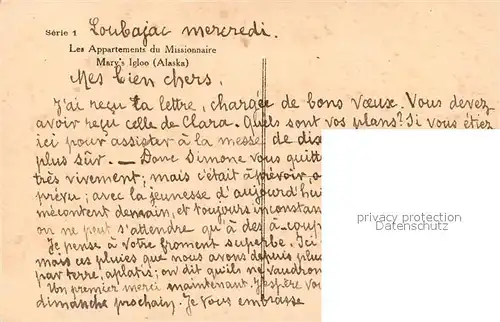 Série 1 Loubajac mercredi.
Les Appartements du Missionnaire
Mary's Igloo (Alaska)
Mes bien chers.
J'ai reçu ta lettre, chargée de bons vœux. Vous devez
avoir reçu celle de Clara. Quels sont vos plans? Si vous étiez
ici pour assister à la messe de dix
plus sûr. — Donc Simone vous quitt
très vivement; mais c'était à prévoir, 
prévu; avec la jeunesse d'aujourd'hui
mécontent demain, et toujours inconstan
on ne peut s'attendre qu'à des à-coup
Je pense à votre froment superbe. Ici
mais ces pluies que nous avons depuis plus
par terre, aplatis; on dit qu'ils ne vaudron
Un premier merci maintenant. J'espère vo
dimanche prochain. Je vous embrasse
privacy protection
Datenschutz